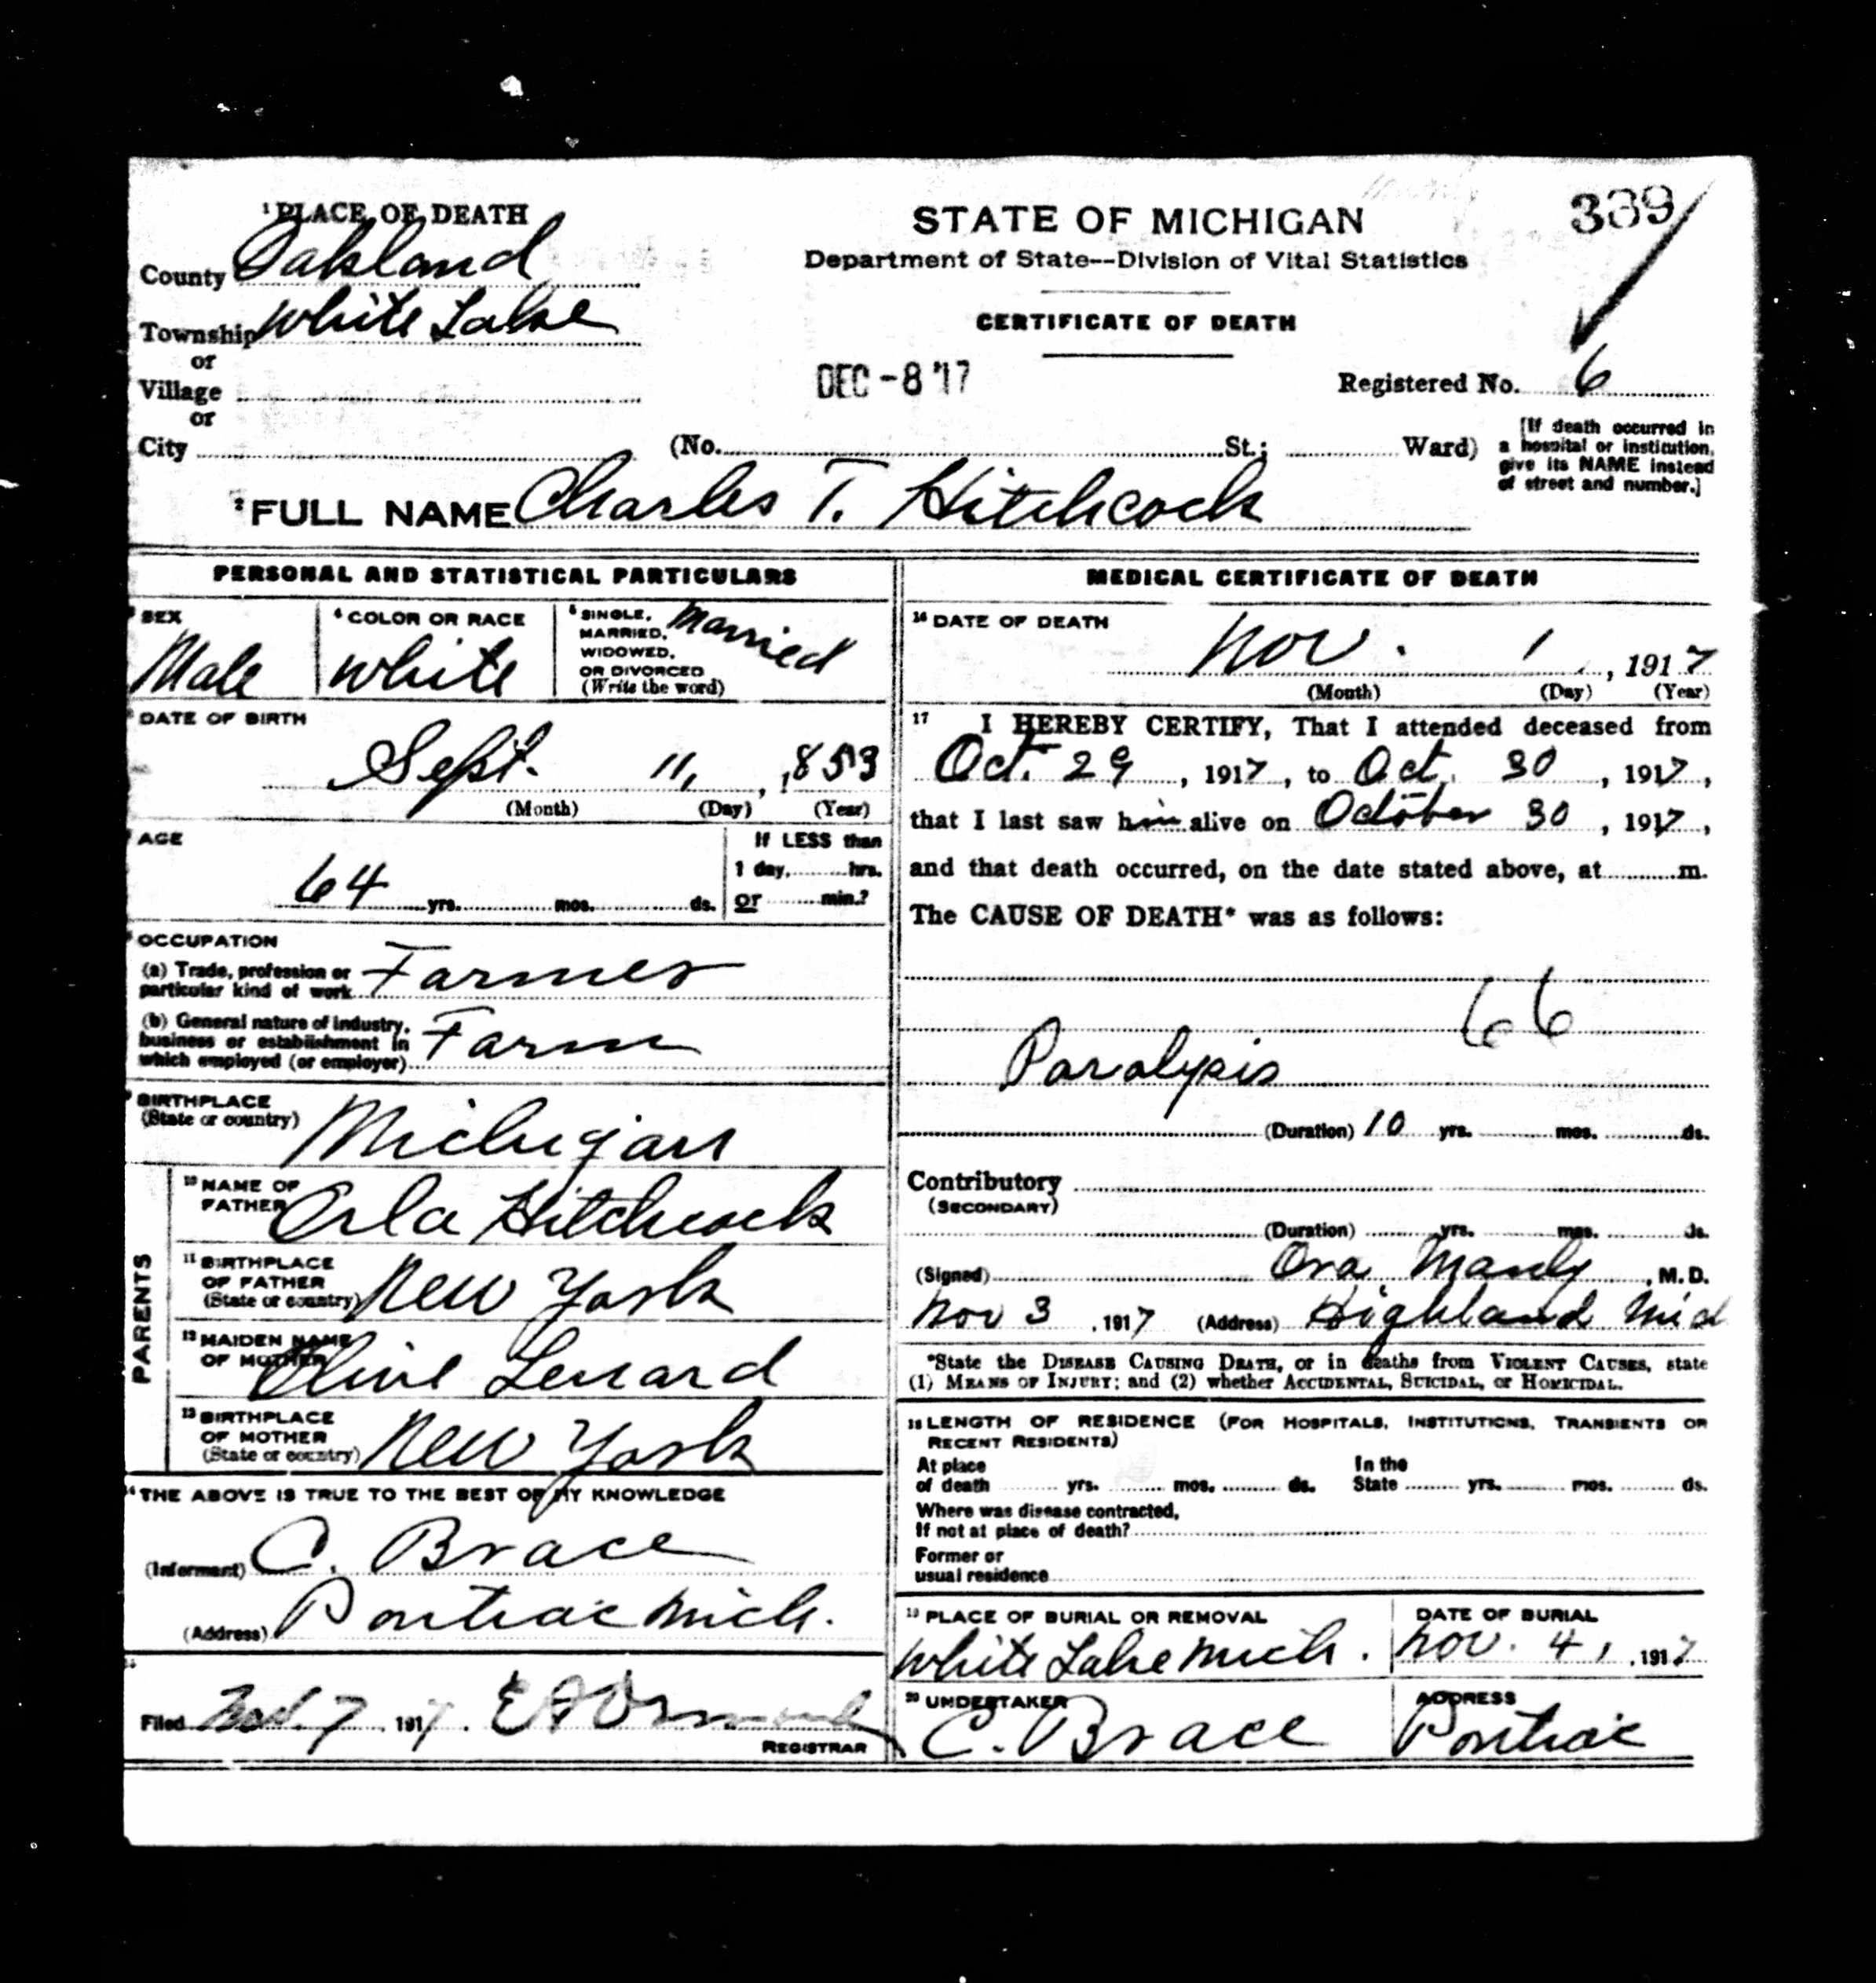 339
¹PLACE OF DEATH
STATE OF MICHIGAN
Department of State--Division of Vital Statistics
County Oakland
Township White Lake
CERTIFICATE OF DEATH
or
Village
DEC -8 '17
Registered No. 6
or
City (No. St.; Ward)
[If death occurred in
a hospital or institution,
give its NAME instead
of street and number.]
²FULL NAME Charles T. Hitchcock
PERSONAL AND STATISTICAL PARTICULARS
³ SEX
Male
⁴ COLOR OR RACE
White
⁵ SINGLE,
MARRIED,
WIDOWED,
OR DIVORCED
(Write the word)
Married
DATE OF BIRTH
Sept. 11, , 1853
(Month) (Day) (Year)
AGE
64 yrs. mos. ds.
If LESS than
1 day, hrs.
or min.?
OCCUPATION
(a) Trade, profession or
particular kind of work Farmer
(b) General nature of industry,
business or establishment in
which employed (or employer) Farm
BIRTHPLACE
(State or country) Michigan
PARENTS
¹⁰ NAME OF
FATHER Orla Hitchcock
¹¹ BIRTHPLACE
OF FATHER
(State or country) New York
¹² MAIDEN NAME
OF MOTHER Olive Lenard
¹³ BIRTHPLACE
OF MOTHER
(State or country) New York
¹⁴ THE ABOVE IS TRUE TO THE BEST OF MY KNOWLEDGE
(Informant) C. Brace
(Address) Pontiac Mich.
¹⁵
Filed Nov. 7, 1917.
REGISTRAR
MEDICAL CERTIFICATE OF DEATH
¹⁶ DATE OF DEATH
Nov. 1, 1917
(Month) (Day) (Year)
¹⁷ I HEREBY CERTIFY, That I attended deceased from
Oct. 29, 1917, to Oct. 30, 1917,
that I last saw him alive on October 30, 1917,
and that death occurred, on the date stated above, at m.
The CAUSE OF DEATH* was as follows:
66
Paralysis
(Duration) 10 yrs. mos. ds.
Contributory
(SECONDARY)
(Duration) yrs. mos. ds.
(Signed) Ora Manly, M.D.
Nov 3, 1917 (Address) Highland Mich
*State the DISEASE CAUSING DEATH, or in deaths from VIOLENT CAUSES, state
(1) MEANS OF INJURY; and (2) whether ACCIDENTAL, SUICIDAL, or HOMICIDAL.
¹⁸ LENGTH OF RESIDENCE (FOR HOSPITALS, INSTITUTIONS, TRANSIENTS OR
RECENT RESIDENTS)
At place
of death yrs. mos. ds.
In the
State yrs. mos. ds.
Where was disease contracted,
If not at place of death?
Former or
usual residence
¹⁹ PLACE OF BURIAL OR REMOVAL
White Lake Mich.
DATE OF BURIAL
Nov. 4, 1917
²⁰ UNDERTAKER
C. Brace
ADDRESS
Pontiac